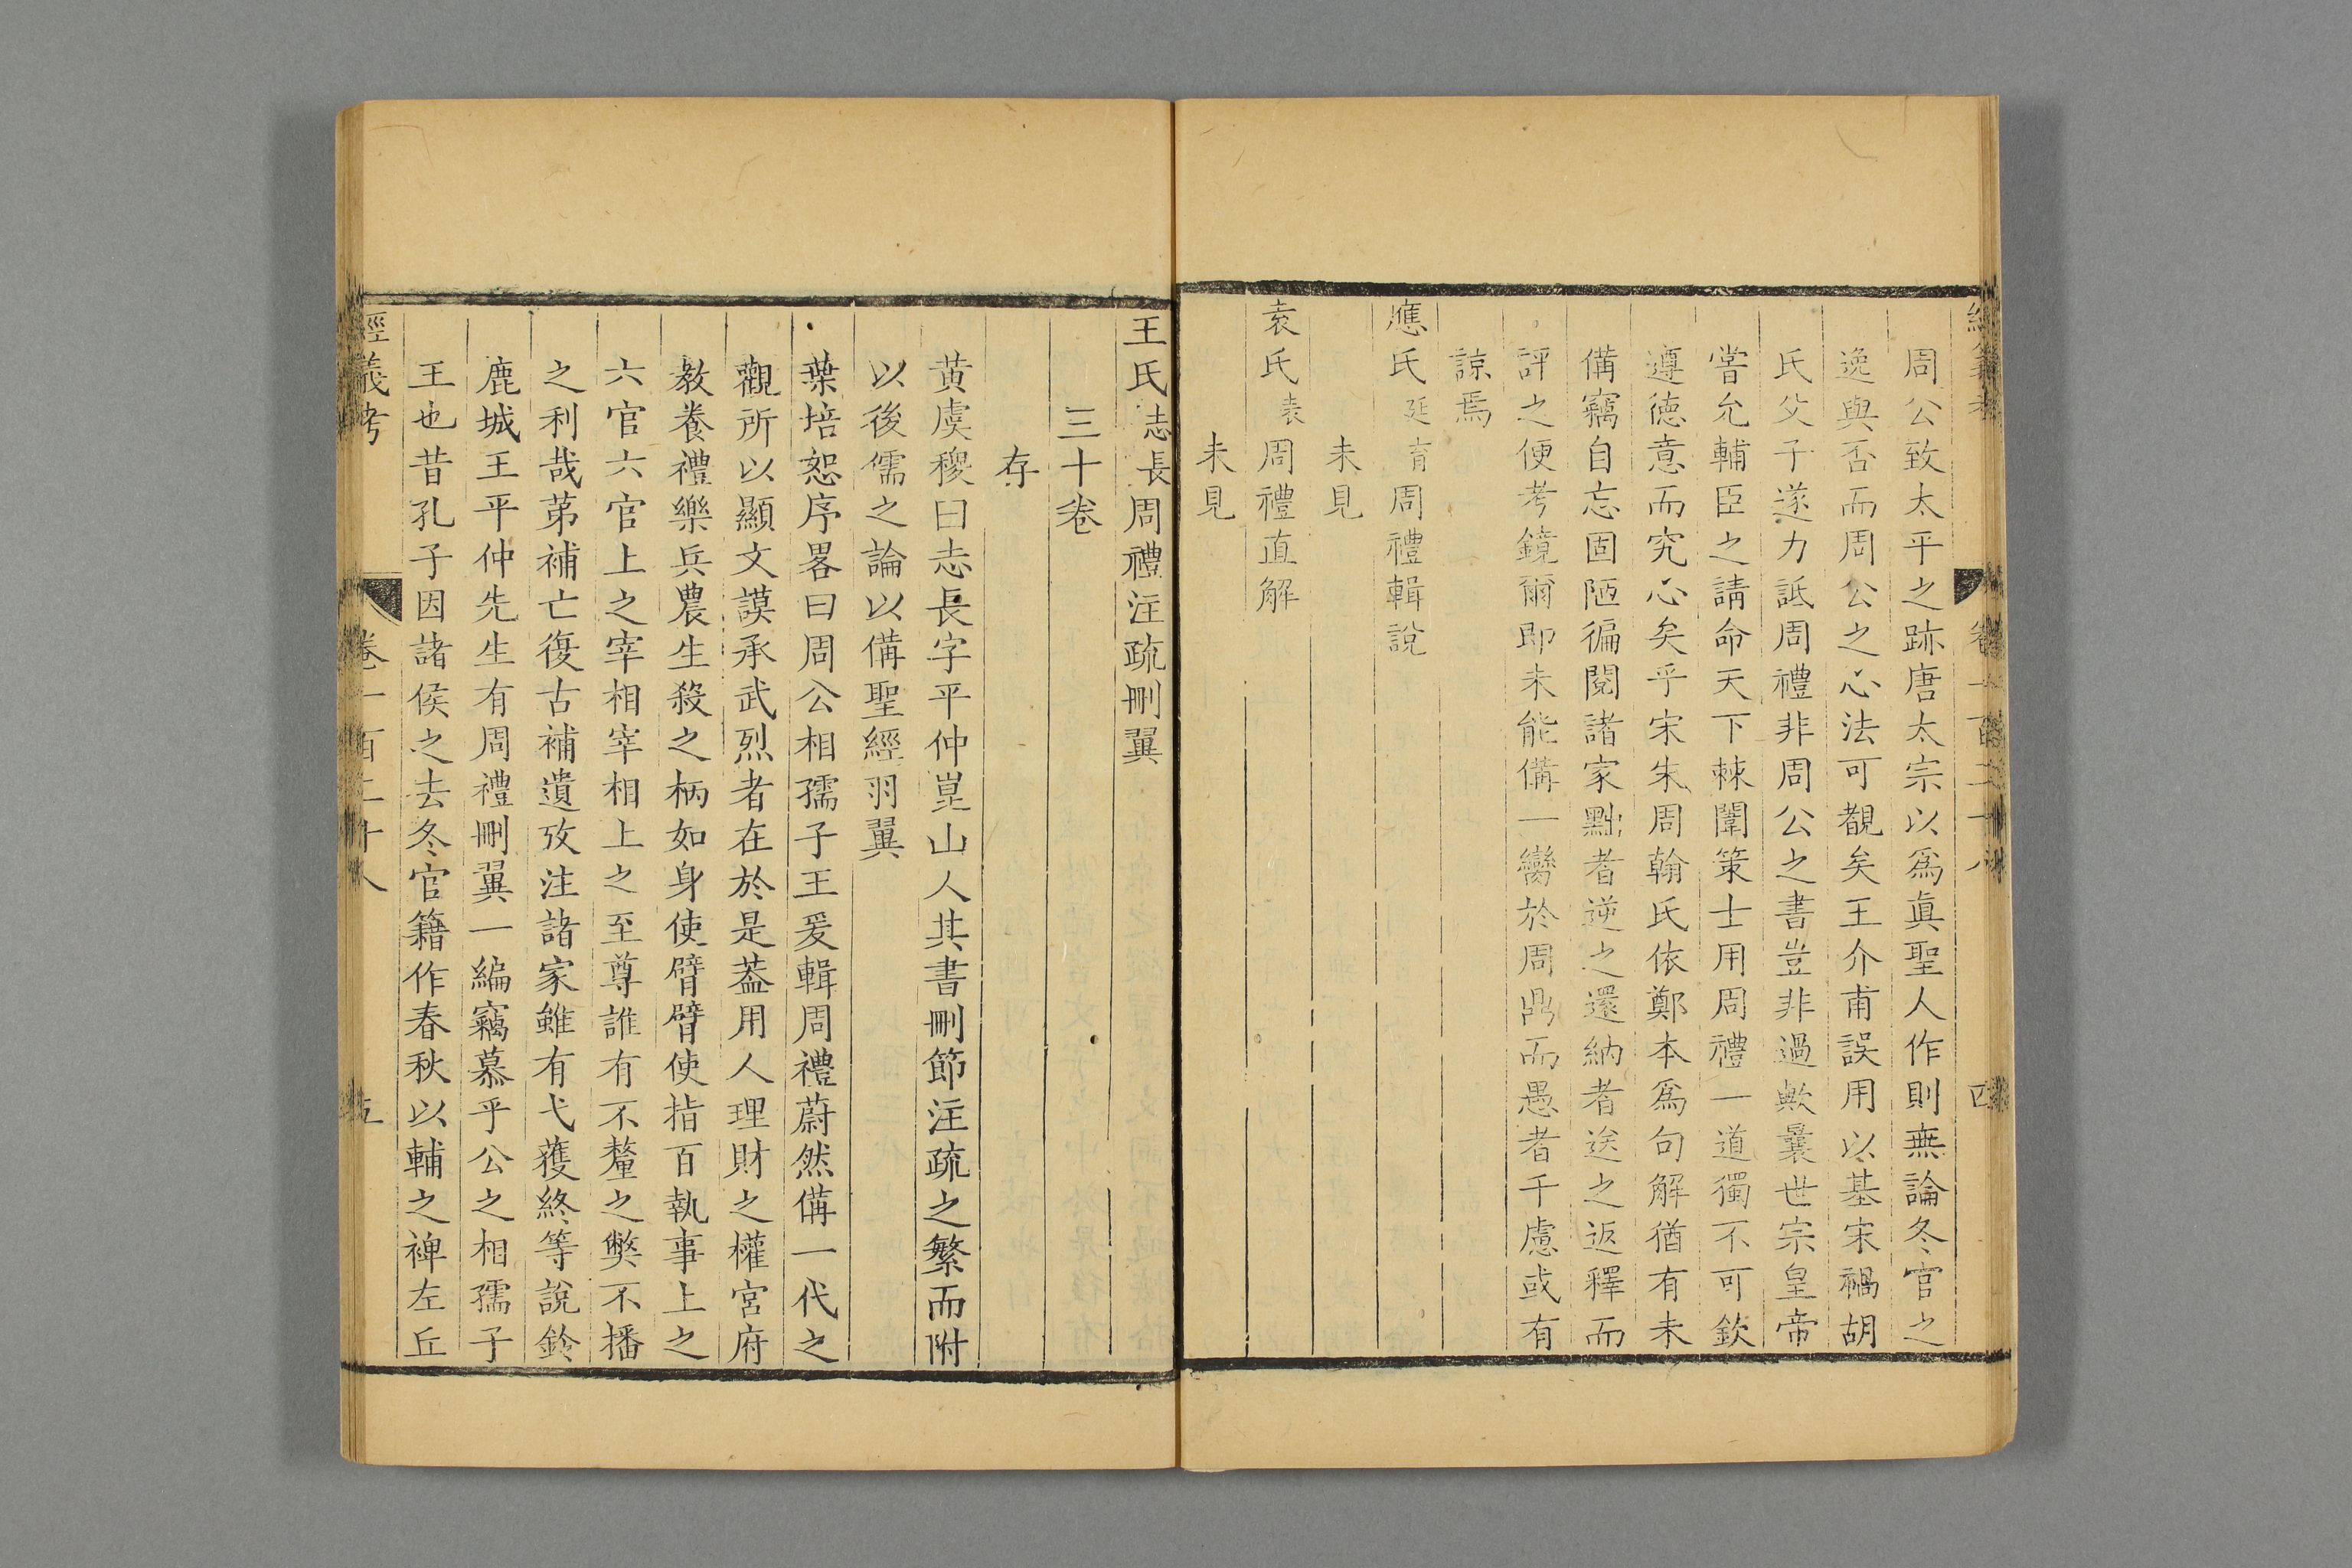 周公致太平之跡唐太宗以爲眞聖人作則無論冬官之
逸與否而周公之心法可覩矣王介甫誤用以基宋禍胡
氏父子遂力詆周禮非周公之書豈非過歟曩世宗皇帝
嘗允輔臣之請命天下棘闈策士用周禮一道獨不可欽
遵德意而究心矣乎宋朱周翰氏依鄭本爲句解猶有未
備竊自忘固陋徧閱諸家黜者逆之還納者送之返釋而
評之便考鏡爾即未能備一臠於周鼎而愚者千慮或有
諒焉
應氏廷育周禮輯說
未見
袁氏表周禮直解
未見
王氏志長周禮注疏刪翼
三十卷
存
黃虞稷曰志長字平仲崑山人其書刪節注疏之繁而附
以後儒之論以備聖經羽翼
葉培恕序畧曰周公相孺子王爰輯周禮蔚然備一代之
觀所以顯文謨承武烈者在於是葢用人理財之權宮府
敎養禮樂兵農生殺之柄如身使臂臂使指百執事上之
六官六官上之宰相宰相上之至尊誰有不釐之獘不播
之利哉苐補亡復古補遺攷注諸家雖有弋獲終等說鈴
鹿城王平仲先生有周禮刪翼一編竊慕乎公之相孺子
王也昔孔子因諸侯之去冬官籍作春秋以輔之禆左丘
經義考 卷一百二十八 五